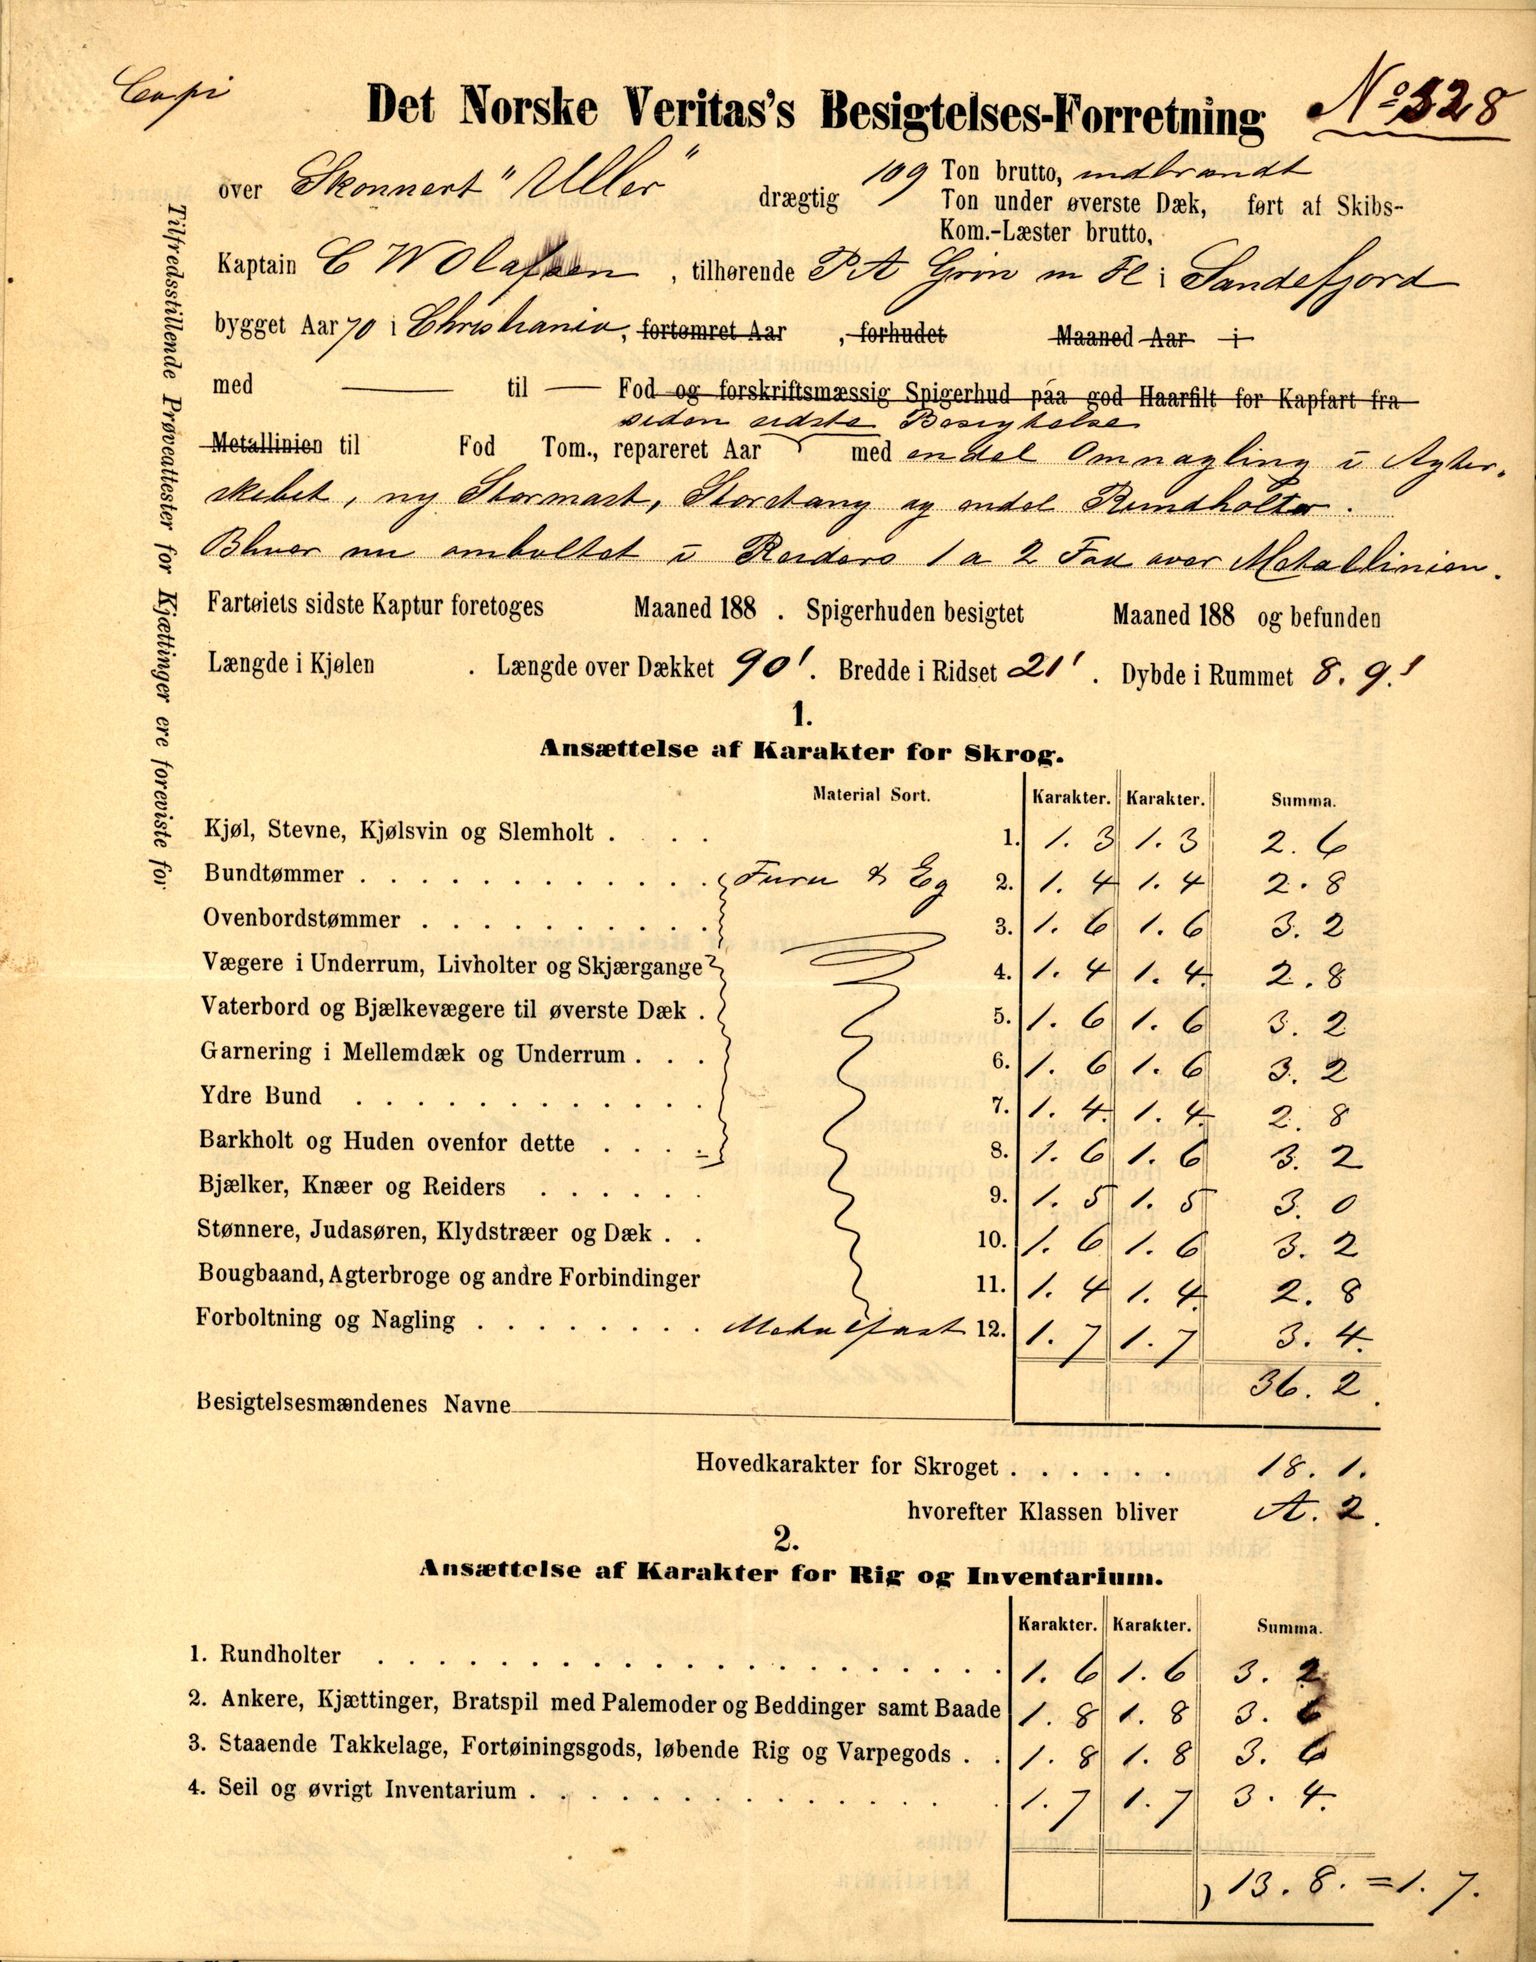 Copi
Det Norske Veritas's Besigtelses-Forretning No 328
over Skonnert "Uller" drægtig 109 Ton brutto, indbrandt
Ton under øverste Dæk, ført af Skibs-
Kom.-Læster brutto,
Kaptain C W Olafsen, tilhørende P A Grøn m Fl i Sandefjord
bygget Aar 70 i Christiania, fortømret Aar , forhudet Maaned Aar i
med — til — Fod og forskriftsmæssig Spigerhud paa god Haarfilt for Kapfart fra
siden sidste Besigtelse
Metallinien til Fod Tom., repareret Aar med endel Omnagling i Agter-
skibet, ny Stormast, Storstang og endel Rundholter.
Bliver nu omboltet i Reiders 1 a 2 Fod over Metallinien.
Fartøiets sidste Kaptur foretoges Maaned 188 . Spigerhuden besigtet Maaned 188 og befunden
Længde i Kjølen . Længde over Dækket 90'. Bredde i Ridset 21'. Dybde i Rummet 8. 9.'
Tilfredsstillende Prøveattester for Kjættinger ere foreviste for
1.
Ansættelse af Karakter for Skrog.
Material Sort. Karakter. Karakter. Summa.
Kjøl, Stevne, Kjølsvin og Slemholt . . . 1. 1. 3 1. 3 2. 6
Bundtømmer . . . . . . . . . . . . Furu & Eg 2. 1. 4 1. 4 2. 8
Ovenbordstømmer . . . . . . . . . . 3. 1. 6 1. 6 3. 2
Vægere i Underrum, Livholter og Skjærgange 4. 1. 4 1. 4. 2. 8
Vaterbord og Bjælkevægere til øverste Dæk . 5. 1. 6 1. 6 3. 2
Garnering i Mellemdæk og Underrum . . . 6. 1. 6 1. 6 3. 2
Ydre Bund . . . . . . . . . . . . . 7. 1. 4. 1. 4. 2. 8
Barkholt og Huden ovenfor dette . . . . 8. 1. 6 1. 6 3. 2
Bjælker, Knæer og Reiders . . . . . . 9. 1. 5 1. 5 3. 0
Stønnere, Judasøren, Klydstræer og Dæk . . 10. 1. 6 1. 6 3. 2
Bougbaand, Agterbroge og andre Forbindinger 11. 1. 4 1. 4. 2. 8
Forboltning og Nagling . . . . . . . . Metalfast 12. 1. 7 1. 7 3. 4.
36. 2.
Besigtelsesmændenes Navne
Hovedkarakter for Skroget . . . . . . 18. 1.
hvorefter Klassen bliver A. 2.
2.
Ansættelse af Karakter for Rig og Inventarium.
Karakter. Karakter. Summa.
1. Rundholter . . . . . . . . . . . . . . . . . . . . 1. 6 1. 6 3. 2
2. Ankere, Kjættinger, Bratspil med Palemoder og Beddinger samt Baade 1. 8 1. 8 3. 6
3. Staaende Takkelage, Fortøiningsgods, løbende Rig og Varpegods . . 1. 8 1. 8 3. 6
4. Seil og øvrigt Inventarium . . . . . . . . . . . . . . 1. 7 1. 7 3. 4.
13. 8. = 1. 7.